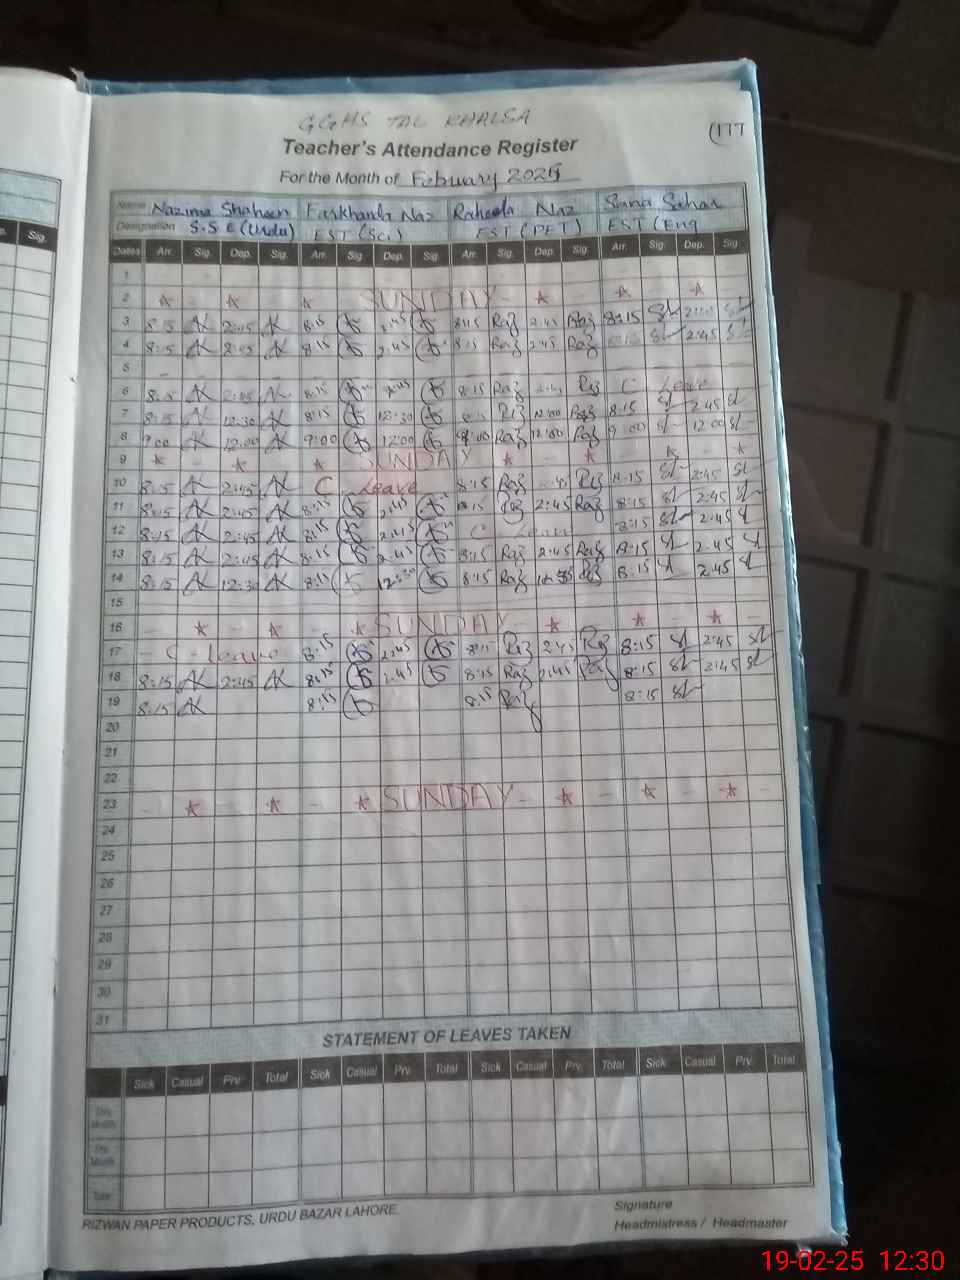 GGHS TAL KHALSA
(177
Teacher's Attendance Register
For the Month of February 2025
Name Nazima Shaheen Farkhanda Naz Raheela Naz Sana Sahar
Designation S.S E (Urdu) EST (Sci) EST (PET) EST (Eng
Dates Arr. Sig. Dep. Sig. Arr. Sig. Dep. Sig. Arr. Sig. Dep. Sig. Arr. Sig. Dep. Sig.
1
2 SUNDAY
3 8:15 2:45 8:15 2:45 8:15 Raz 2:45 Raz 8:15 2:45
4 8:15 2:45 8:15 2:45 8:15 Raz 2:45 Raz 2:45
5
6 8:15 2:45 8:15 2:45 8:15 Raz C Leave
7 8:15 12:30 8:15 12:30 8:15 12:00 Raz 8:15 2:45
8 9:00 12:00 9:00 12:00 Raz 12:00 Raz 9:00 12:00
9 SUNDAY
10 8:15 2:45 C Leave 8:15 Raz 8:15 2:45
11 8:15 2:45 8:15 2:45 8:15 2:45 Raz 8:15 2:45
12 8:15 2:45 8:15 2:45 C Leave 8:15 2:45
13 8:15 2:45 8:15 2:45 8:15 Raz 2:45 Raz 8:15 2:45
14 8:15 12:30 8:15 12:30 8:15 Raz 8:15 2:45
15
16 SUNDAY
17 C - leave 8:15 2:45 8:15 2:45 8:15 2:45
18 8:15 2:45 8:15 2:45 8:15 Raz 2:45 8:15 2:45
19 8:15 8:15 8:15 8:15
20
21
22
23 SUNDAY
24
25
26
27
28
29
30
31
STATEMENT OF LEAVES TAKEN
Sick Casual Prv. Total Sick Casual Prv. Total Sick Casual Prv. Total Sick Casual Prv. Total
Month
Month
Total
RIZWAN PAPER PRODUCTS, URDU BAZAR LAHORE.
Signature
Headmistress / Headmaster
19-02-25 12:30